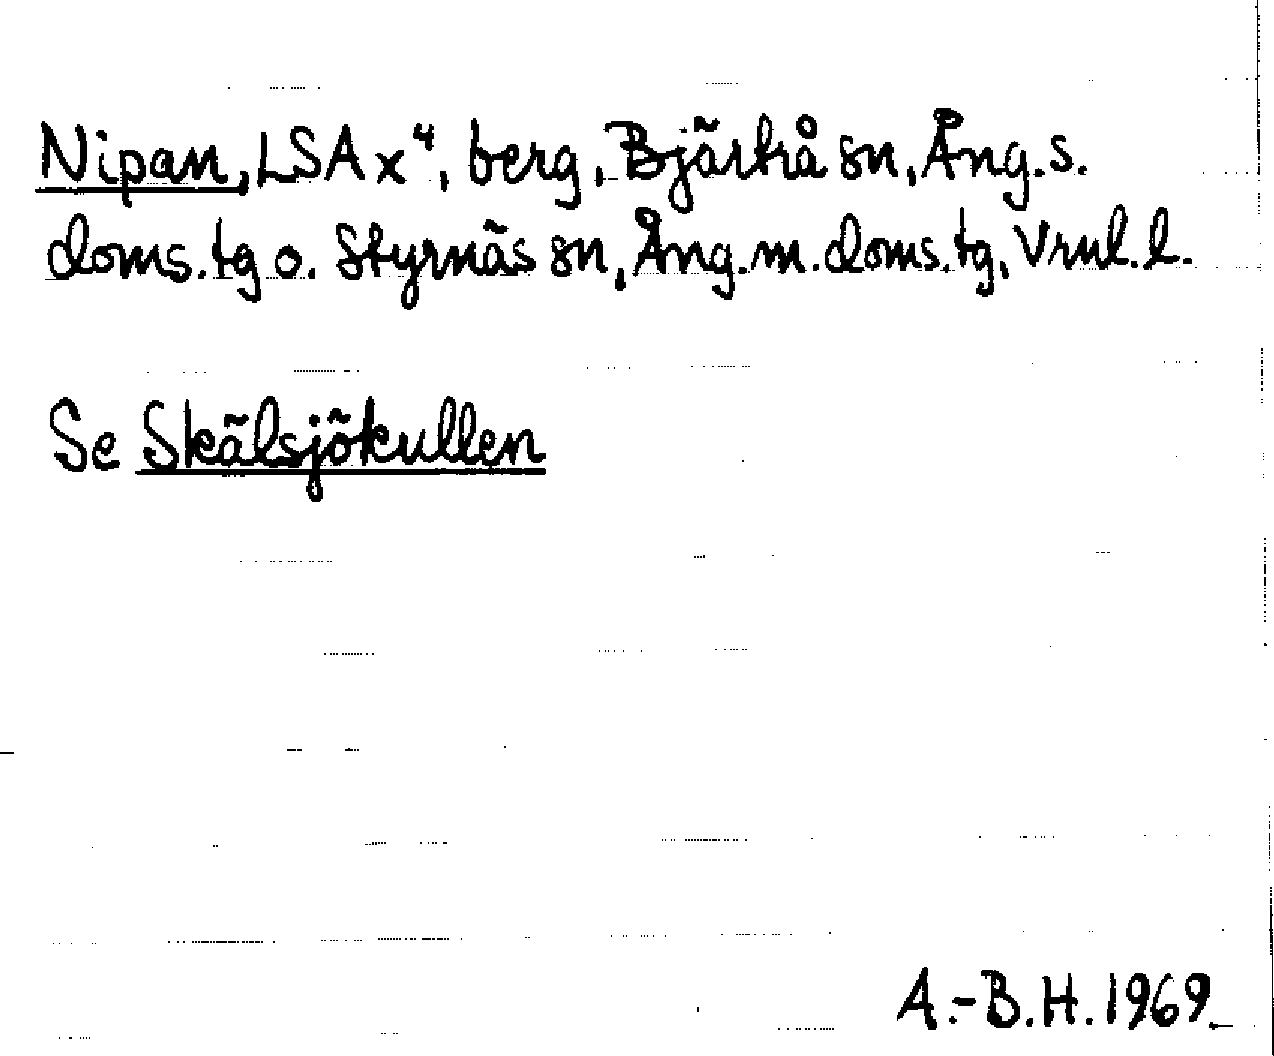 Nipan, LSA x⁴, berg, Bjärtrå sn, Ång.s.
doms.tg o. Styrnäs sn, Ång.m.doms.tg, Vrnl.l.
Se Skälsjökullen
A.-B.H. 1969